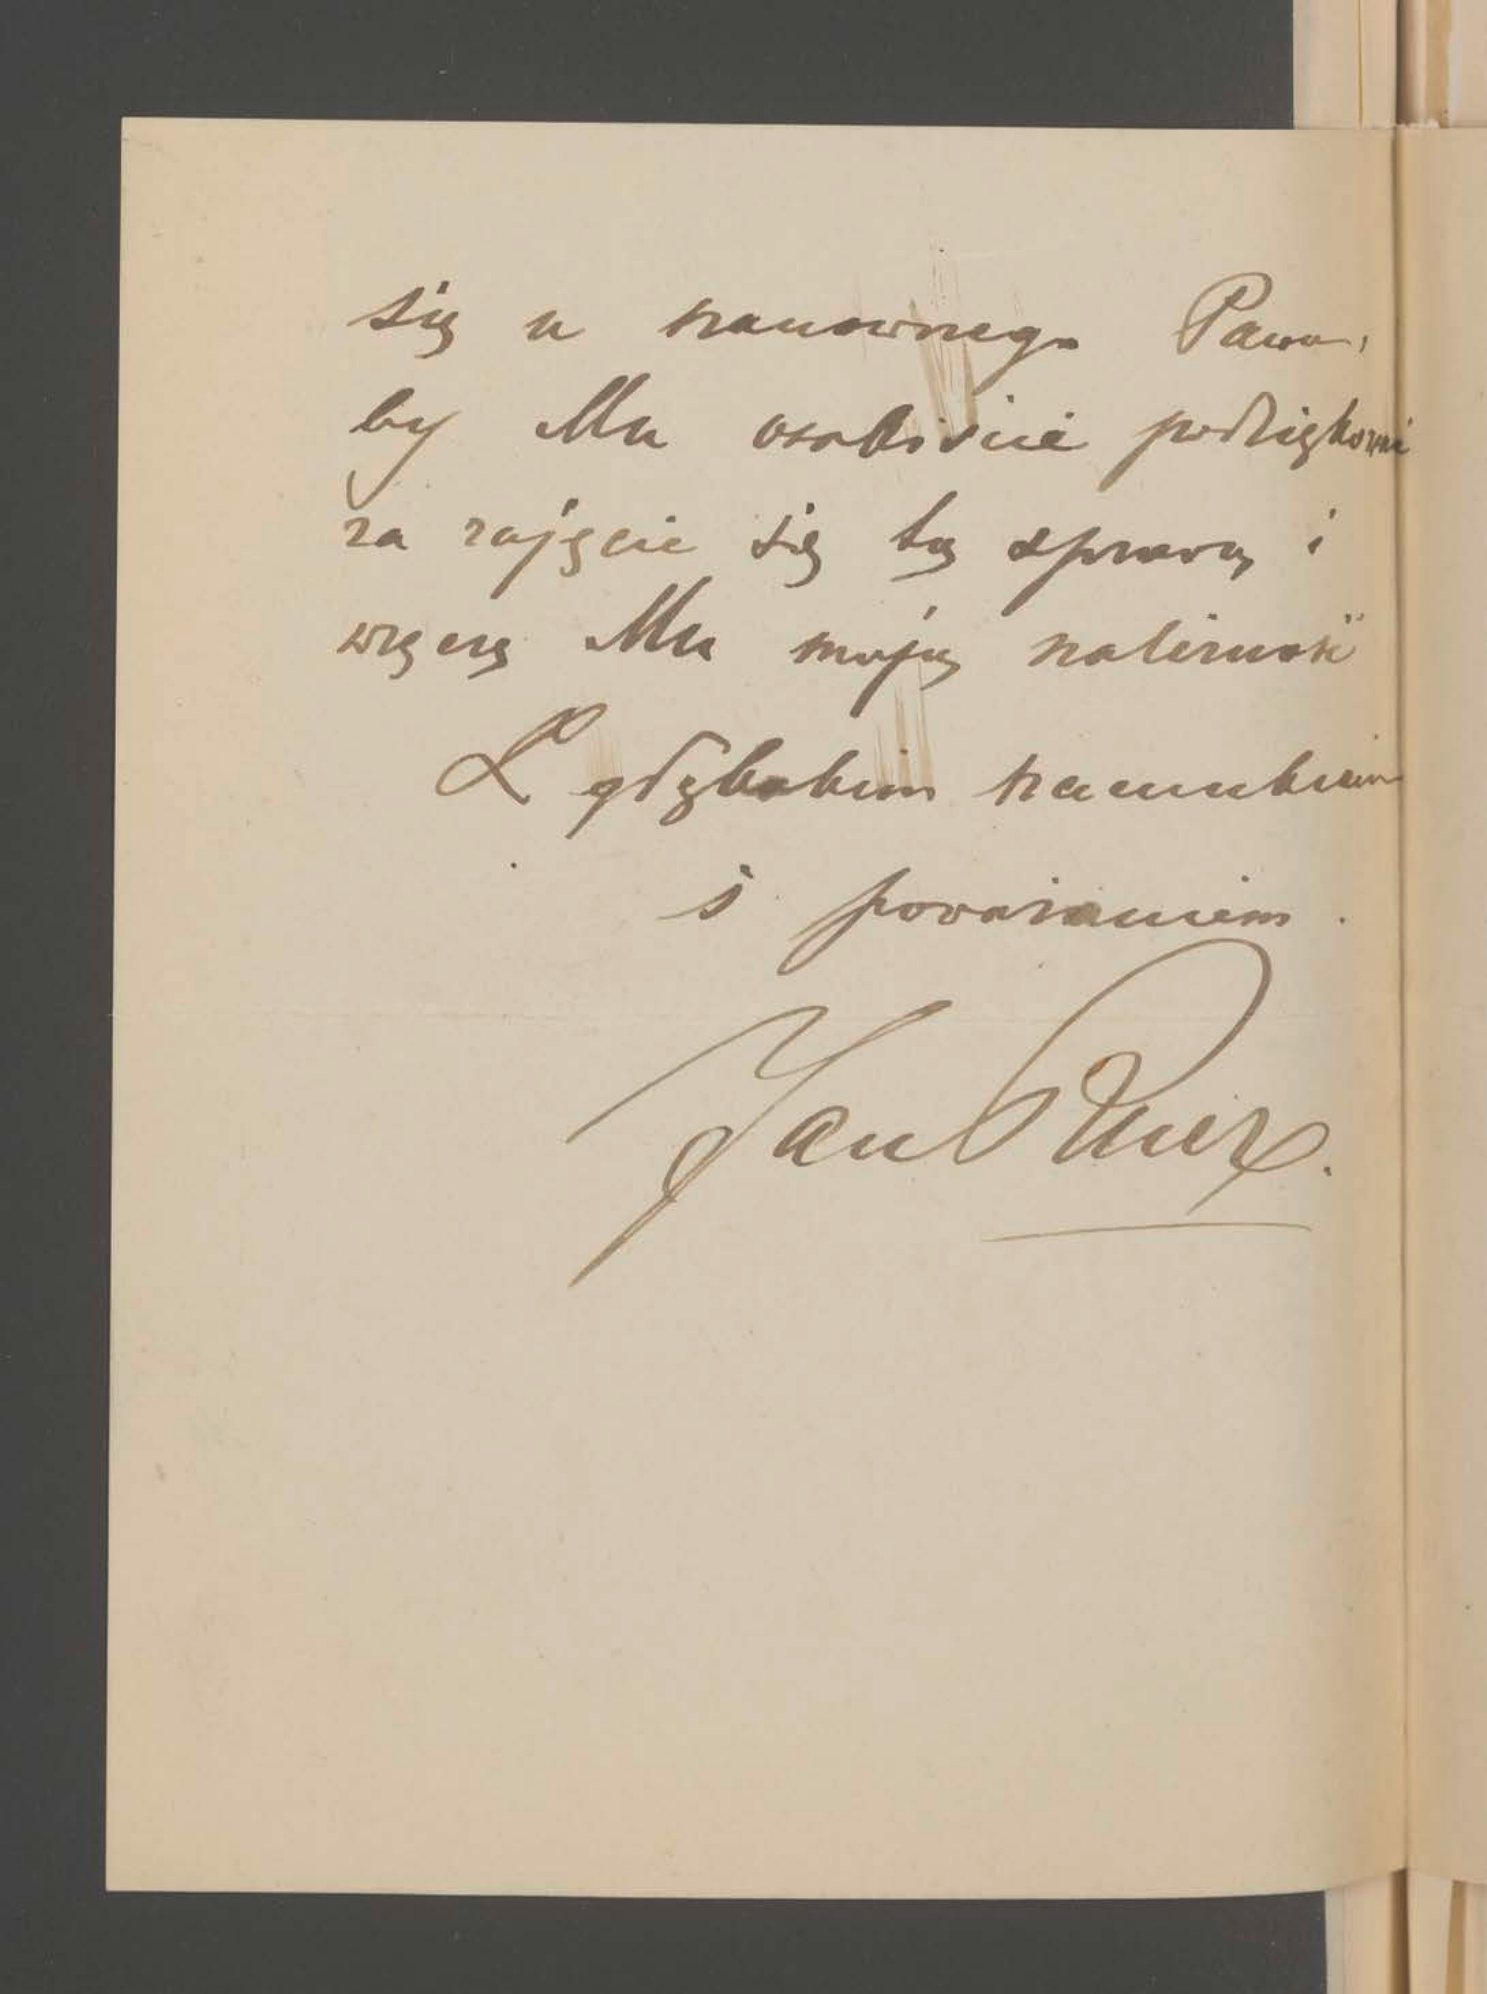 się u szanownego Pana,
by Mu osobiście podziękować
za zajęcie się tą sprawą i
wręczę Mu moją należność
Z głębokim szacunkiem
i poważaniem.
Jan